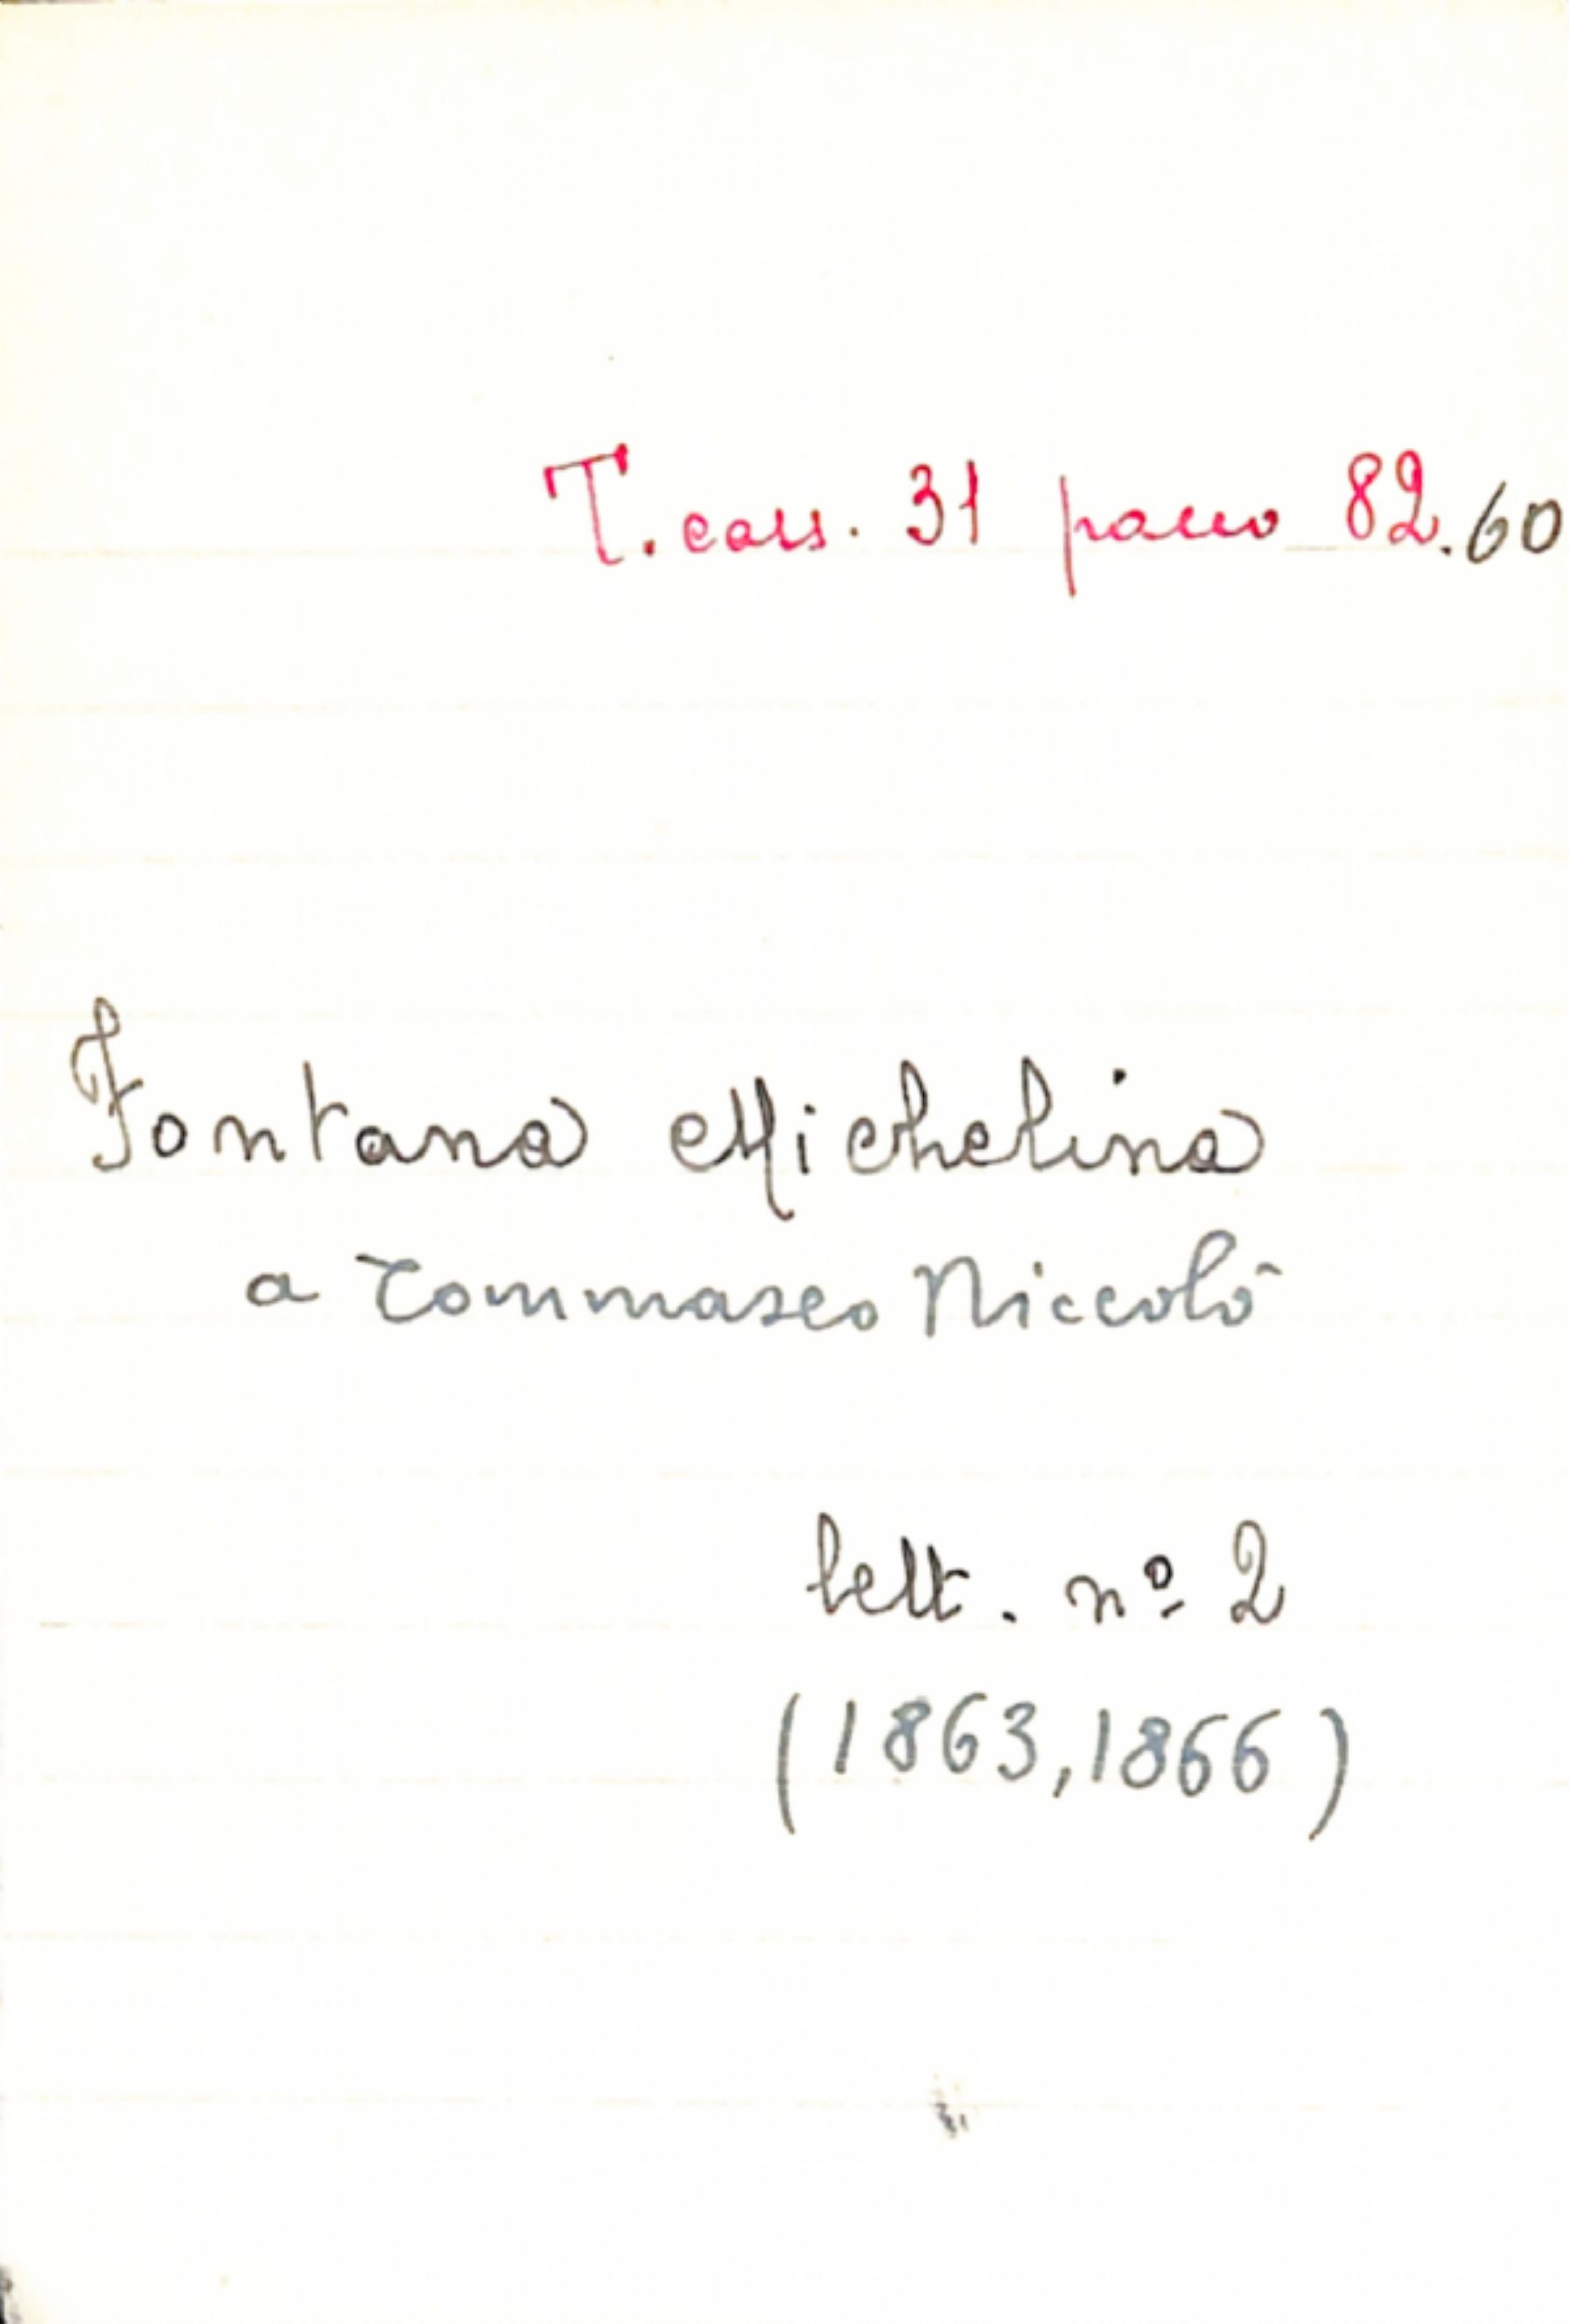 T. cass. 31 pacco 82.60
Fontana Michelina
a Tommaseo Niccolò
lett. nº 2
(1863, 1866)